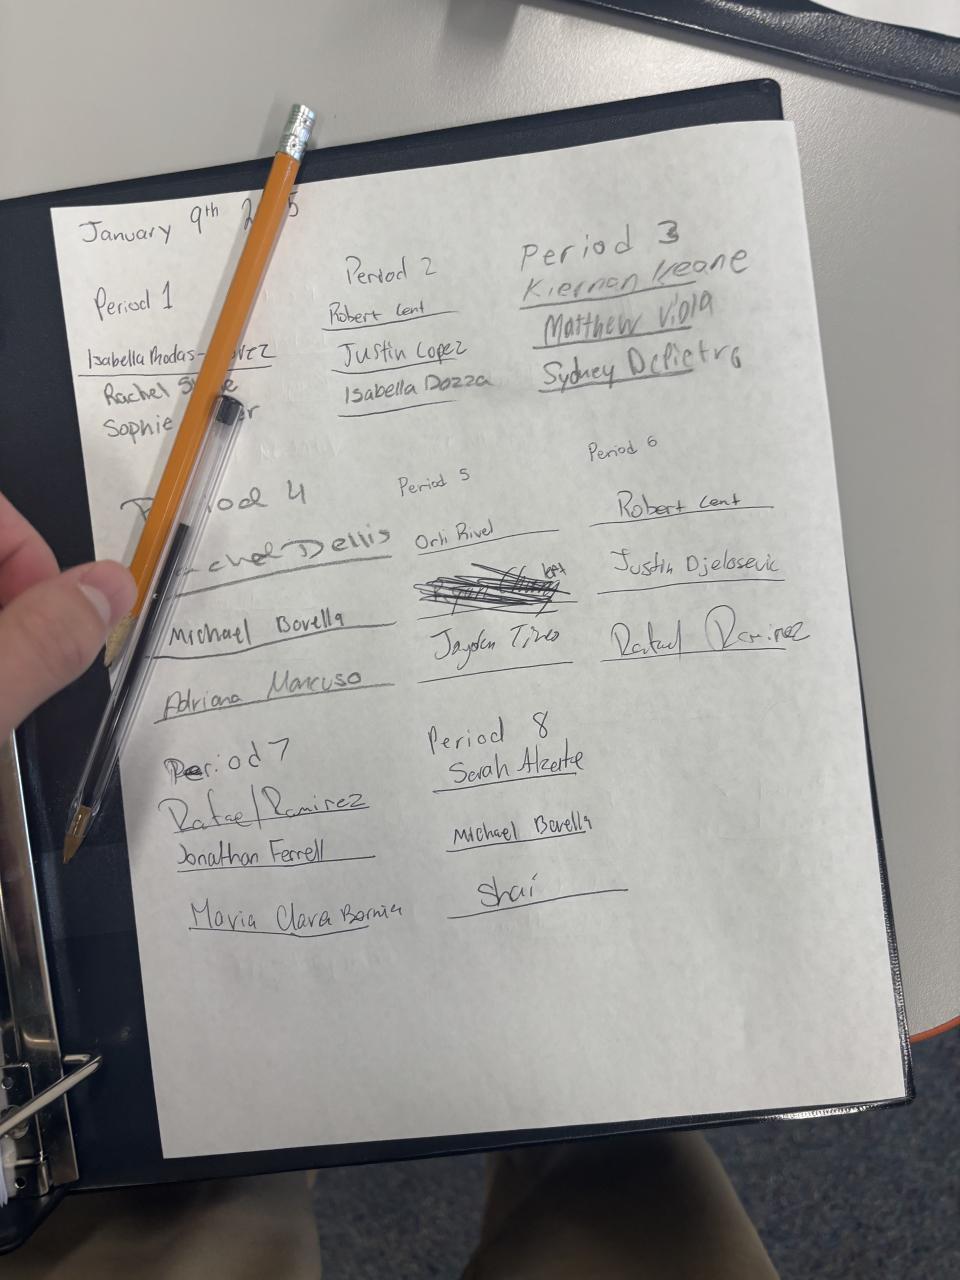 January 9th
Period 1
Isabella Rhodas-
Rachel
Sophie
Period 2
Robert Cent
Justin Lopez
Isabella Dozza
Period 3
Kiernan Keane
Matthew Viola
Sydney DePietro
4
Dellis
Michael Bovella
Adriana Marcuso
Period 5
Orli Rivel
left
Jayden
Period 6
Robert Cent
Justin Djelosevic
Rafael Ramirez
Period 7
Rafael Ramirez
Jonathan Ferrell
Maria Clara Bernia
Period 8
Sarah
Michael Bovella
Shai